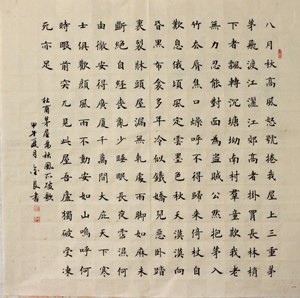 八月秋高風怒號捲我屋上三重茅
茅飛渡江灑江郊高者掛罥長林梢
下者飄轉沉塘坳南村群童欺我老
無力忍能對面為盜賊公然抱茅入
竹去唇焦口燥呼不得歸來倚杖自
歎息俄頃風定雲墨色秋天漠漠向
昏黑布衾多年冷似鐵嬌兒惡臥踏
裏裂牀頭屋漏無乾處雨腳如麻未
斷絕自經喪亂少睡眠長夜霑濕何
由徹安得廣廈千萬間大庇天下寒
士俱歡顏風雨不動安如山嗚呼何
時眼前突兀見此屋吾廬獨破受凍
死亦足
杜甫茅屋為秋風所破歌
甲午夏月良書